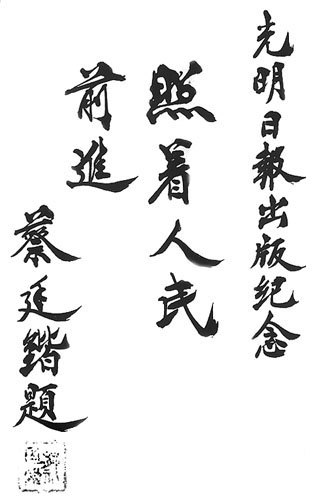 光明日報出版纪念
照着人民
前進
蔡廷鍇題